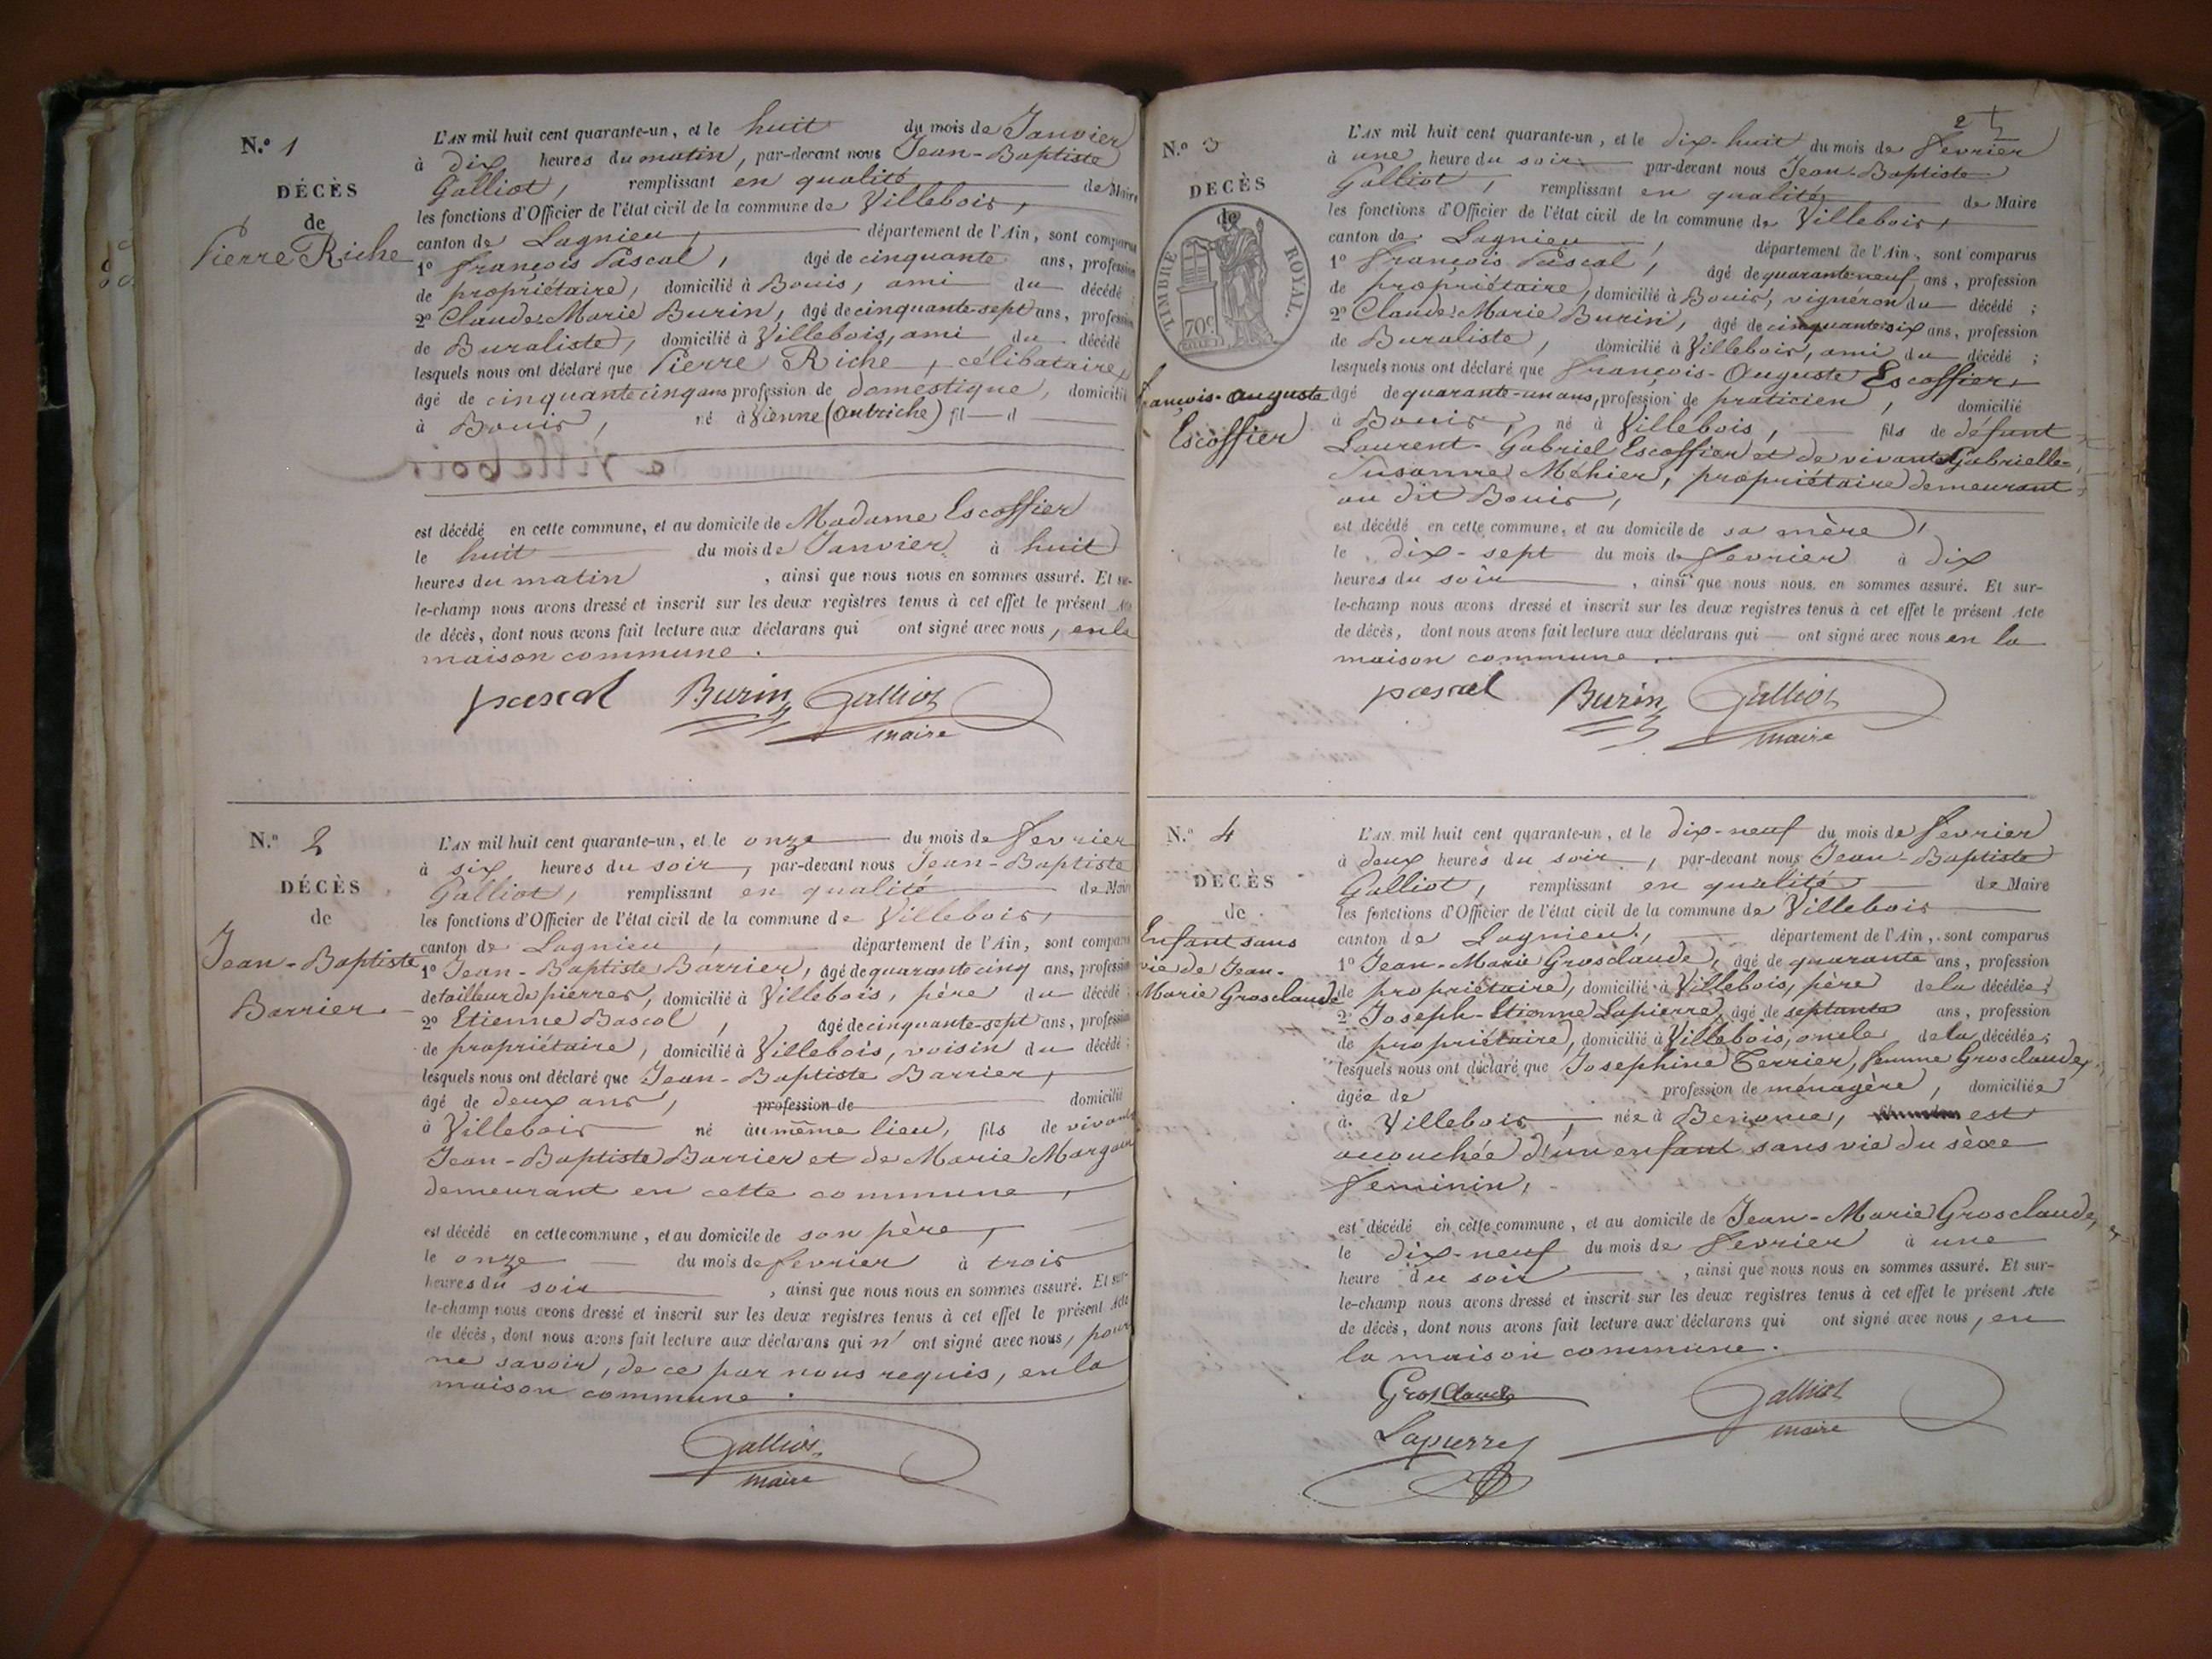 N.º 1
DÉCÈS
de
Pierre Riche
L'AN mil huit cent quarante-un, et le huit du mois de Janvier
à dix heures du matin, par-devant nous Jean-Baptiste
Galliot, remplissant en qualité de Maire
les fonctions d'Officier de l'état civil de la commune de Villebois,
canton de Lagnieu, département de l'Ain, sont comparus
1º François Pascal, âgé de cinquante ans, profession
de propriétaire, domicilié à Bouis, ami du décédé ;
2º Claude-Marie Burin, âgé de cinquante-sept ans, profession
de Buraliste, domicilié à Villebois, ami du décédé
lesquels nous ont déclaré que Pierre Riche, célibataire,
âgé de cinquante cinq ans profession de domestique, domicilié
à Bouis, né à Vienne (Autriche) fil d
est décédé en cette commune, et au domicile de Madame Escoffier
le huit du mois de Janvier à huit
heures du matin, ainsi que nous nous en sommes assuré. Et sur-
le-champ nous avons dressé et inscrit sur les deux registres tenus à cet effet le présent Acte
de décès, dont nous avons fait lecture aux déclarans qui ont signé avec nous, en la
maison commune.
pascal Burin Galliot
maire
N.º 2
DÉCÈS
de
Jean-Baptiste
Barrier
L'AN mil huit cent quarante-un, et le onze du mois de fevrier
à six heures du soir, par-devant nous Jean-Baptiste
Galliot, remplissant en qualité de Maire
les fonctions d'Officier de l'état civil de la commune de Villebois,
canton de Lagnieu, département de l'Ain, sont comparus
1º Jean-Baptiste Barrier, âgé de quarante cinq ans, profession
de tailleur de pierres, domicilié à Villebois, père du décédé ;
2º Etienne Bascol, âgé de cinquante-sept ans, profession
de propriétaire, domicilié à Villebois, voisin du décédé ;
lesquels nous ont déclaré que Jean-Baptiste Barrier,
âgé de deux ans, profession de domicilié
à Villebois né au même lieu, fils de vivants
Jean-Baptiste Barrier et de Marie
demeurant en cette commune,
est décédé en cette commune, et au domicile de son père,
le onze du mois de fevrier à trois
heures du soir, ainsi que nous nous en sommes assuré. Et sur-
le-champ nous avons dressé et inscrit sur les deux registres tenus à cet effet le présent Acte
de décès, dont nous avons fait lecture aux déclarans qui n' ont signé avec nous, pour
ne savoir, de ce par nous requis, en la
maison commune.
Galliot
maire
2
N.º 3
DECÈS
de
TIMBRE ROYAL.
70 c.
François-Auguste
Escoffier
L'AN mil huit cent quarante-un, et le dix-huit du mois de fevrier
à une heure du soir par-devant nous Jean-Baptiste
Galliot, remplissant en qualité de Maire
les fonctions d'Officier de l'état civil de la commune de Villebois,
canton de Lagnieu, département de l'Ain, sont comparus
1º François Pascal, âgé de quarante-neuf ans, profession
de propriétaire, domicilié à Bouis, vignéron du décédé ;
2º Claude-Marie Burin, âgé de cinquante six ans, profession
de Buraliste, domicilié à Villebois, ami du décédé ;
lesquels nous ont déclaré que François-Auguste Escoffier,
âgé de quarante-un ans, profession de praticien, domicilié
à Bouis, né à Villebois, fils de défunt
Laurent-Gabriel Escoffier et de vivante Gabrielle-
Susanne Méhier, propriétaire demeurant
au dit Bouis,
est décédé en cette commune, et au domicile de sa mère,
le dix-sept du mois de fevrier à dix
heures du soir, ainsi que nous nous en sommes assuré. Et sur-
le-champ nous avons dressé et inscrit sur les deux registres tenus à cet effet le présent Acte
de décès, dont nous avons fait lecture aux déclarans qui ont signé avec nous en la
maison commune.
pascal Burin Galliot
maire
N.º 4
DECÈS
de
Enfant sans
vie de Jean-
Marie Grosclaude
L'AN mil huit cent quarante-un, et le dix-neuf du mois de fevrier
à deux heures du soir, par-devant nous Jean-Baptiste
Galliot, remplissant en qualité de Maire
les fonctions d'Officier de l'état civil de la commune de Villebois
canton de Lagnieu, département de l'Ain, sont comparus
1º Jean-Marie Grosclaude, âgé de quarante ans, profession
de propriétaire, domicilié à Villebois, père de la décédée ;
2º Joseph-Etienne Lapierre, âgé de septante ans, profession
de propriétaire, domicilié à Villebois, oncle de la décédée ;
lesquels nous ont déclaré que Josephine Terrier, femme Grosclaude,
âgée de profession de ménagère, domiciliée
à Villebois, née à Benonce, est
accouchée d'un enfant sans vie du sèxe
feminin,
est décédé en cette commune, et au domicile de Jean-Marie Grosclaude,
le dix-neuf du mois de fevrier à une
heure du soir, ainsi que nous nous en sommes assuré. Et sur-
le-champ nous avons dressé et inscrit sur les deux registres tenus à cet effet le présent Acte
de décès, dont nous avons fait lecture aux déclarans qui ont signé avec nous, en
la maison commune.
Grosclaude Galliot
Lapierre maire